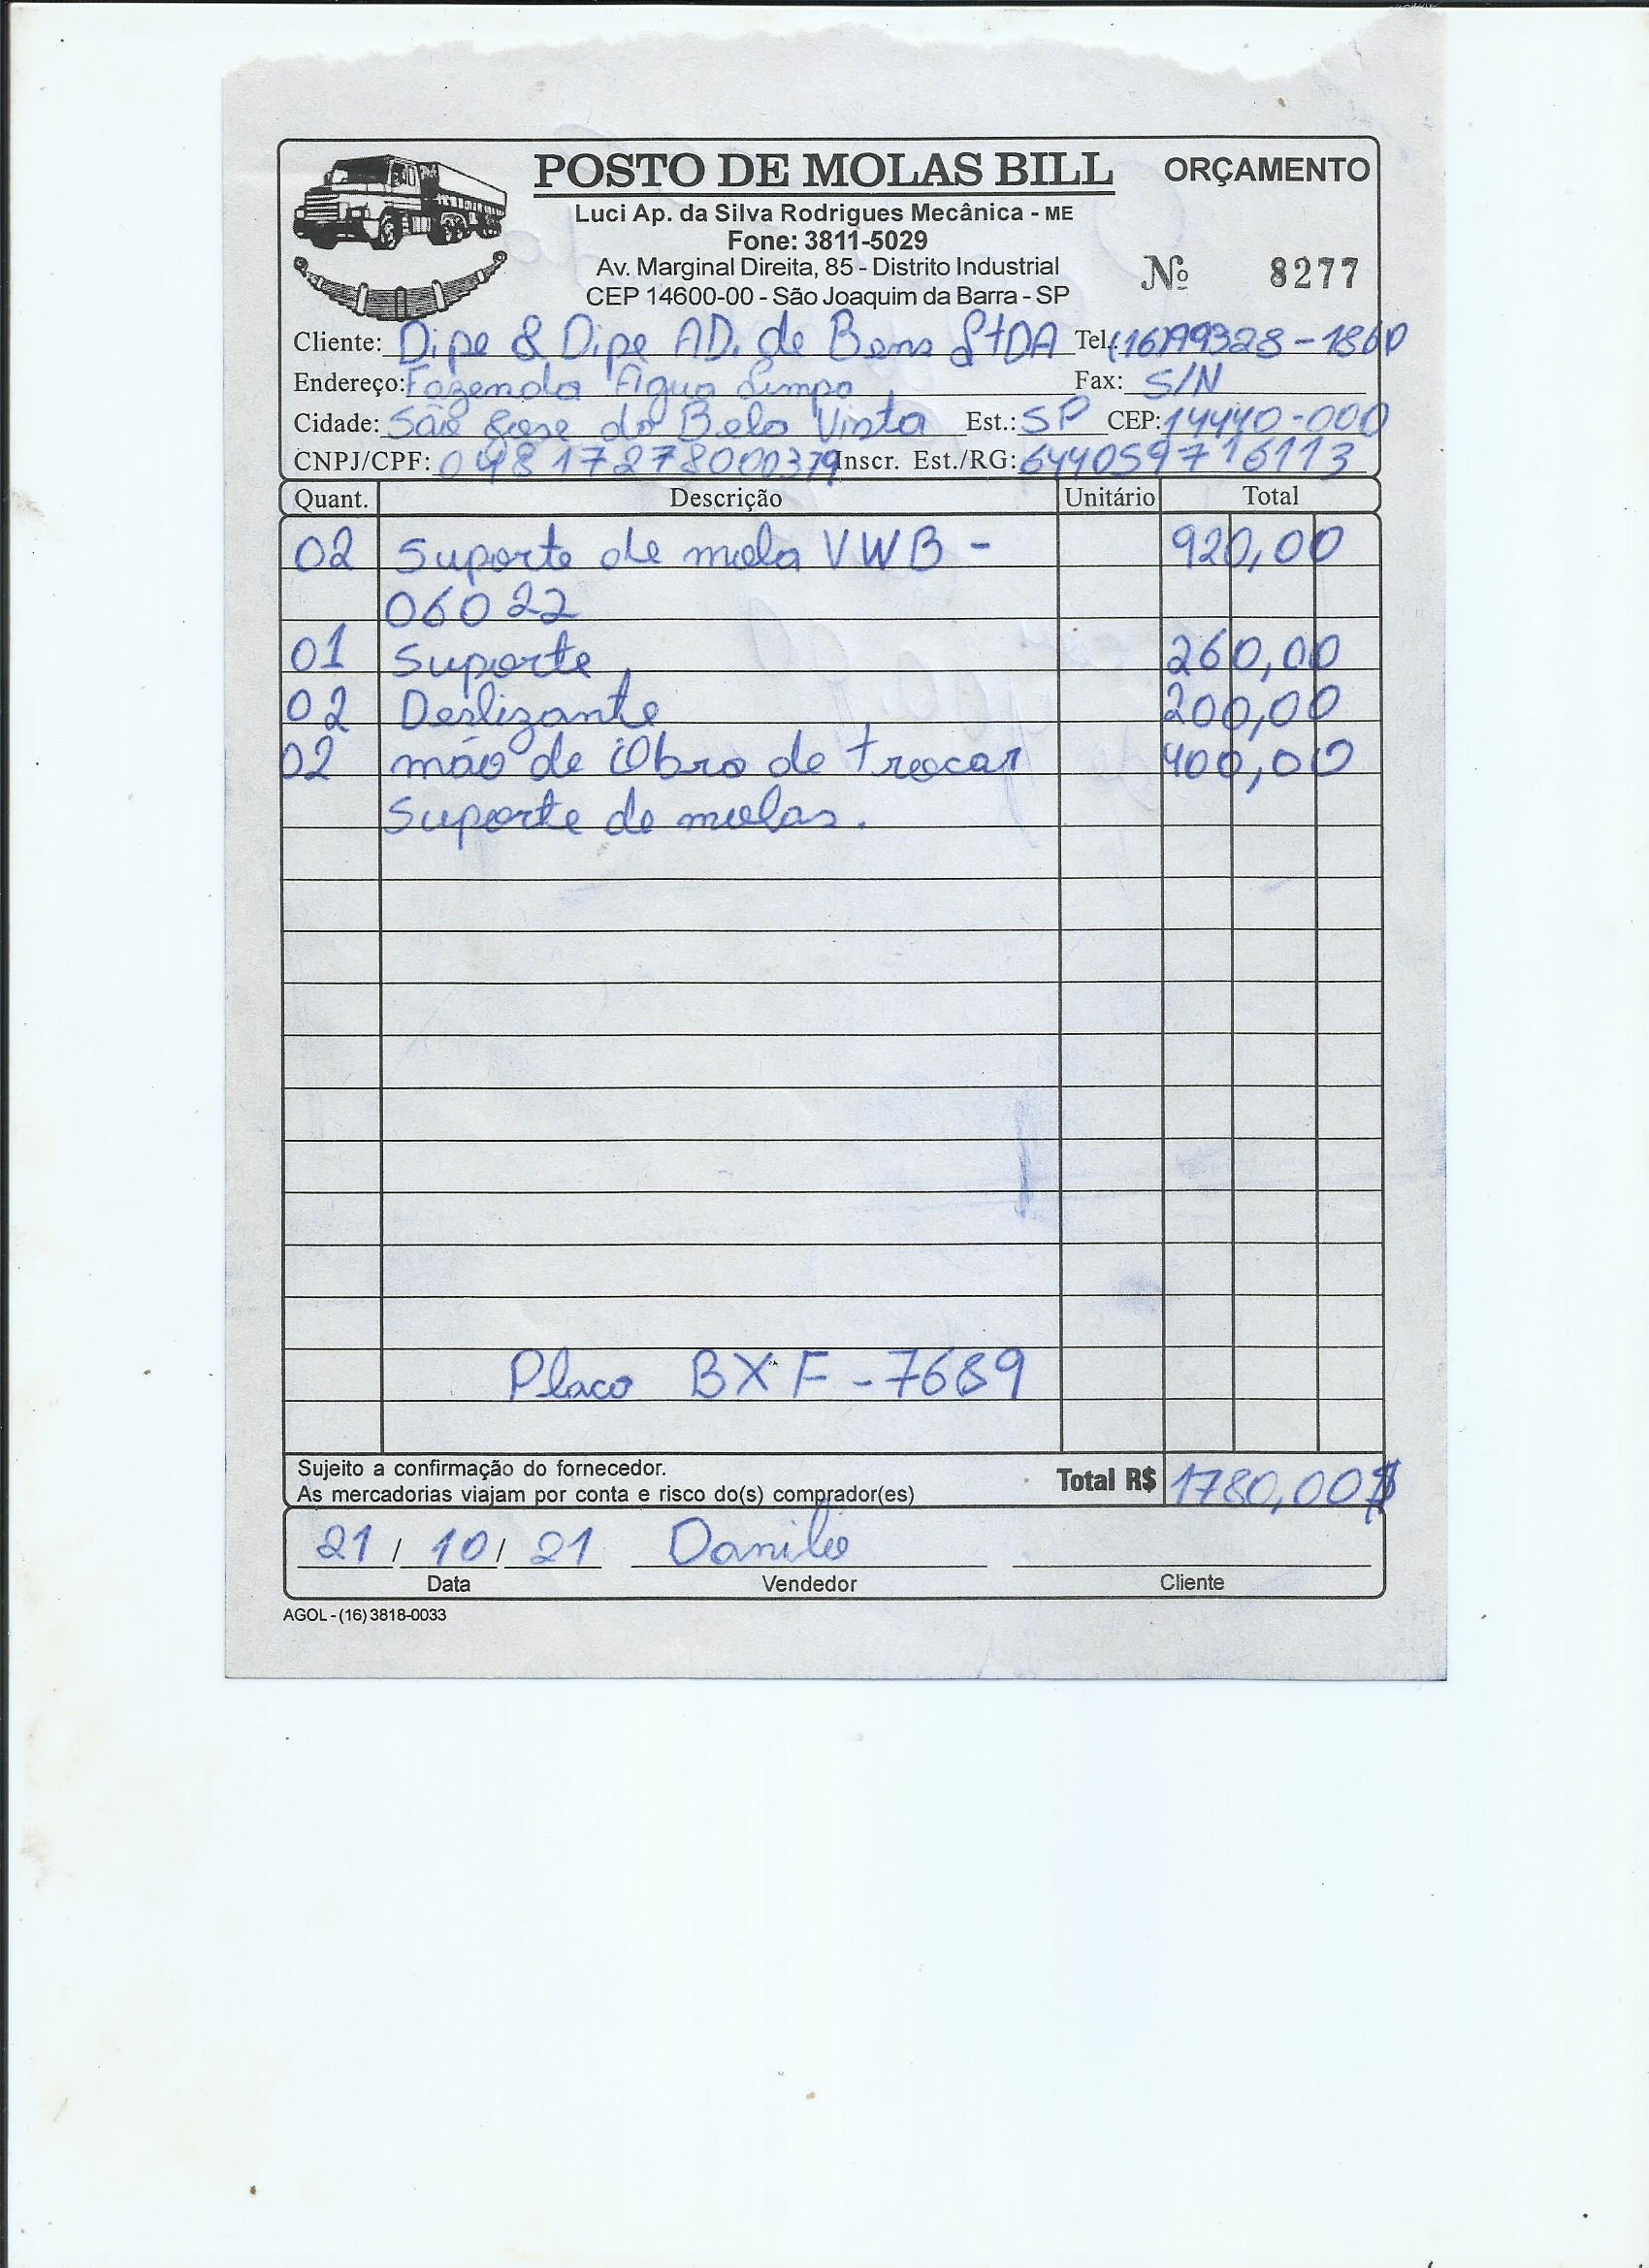 POSTO DE MOLAS BILL ORÇAMENTO
Luci Ap. da Silva Rodrigues Mecânica - ME
Fone: 3811-5029
Av. Marginal Direita, 85 - Distrito Industrial
CEP 14600-00 - São Joaquim da Barra - SP
Nº 8277
Cliente: Dipe & Dipe AD. de Bens LtDA Tel.: (16)99328-1860
Endereço: Fazenda Agua Limpa Fax: S/N
Cidade: São Jose da Bela Vista Est.: SP CEP: 14440-000
CNPJ/CPF: 04817278000379 Inscr. Est./RG: 644059716113
Quant. Descrição Unitário Total
02 Suporte de mola VWB - 920,00
06022
01 Suporte 260,00
02 Deslizante 200,00
02 mão de Obra de trocar 400,00
Suporte de molas.
Placa BXF-7689
Sujeito a confirmação do fornecedor.
As mercadorias viajam por conta e risco do(s) comprador(es)
Total R$ 1780,00$
21 / 10 / 21 Danilo
Data Vendedor Cliente
AGOL - (16) 3818-0033